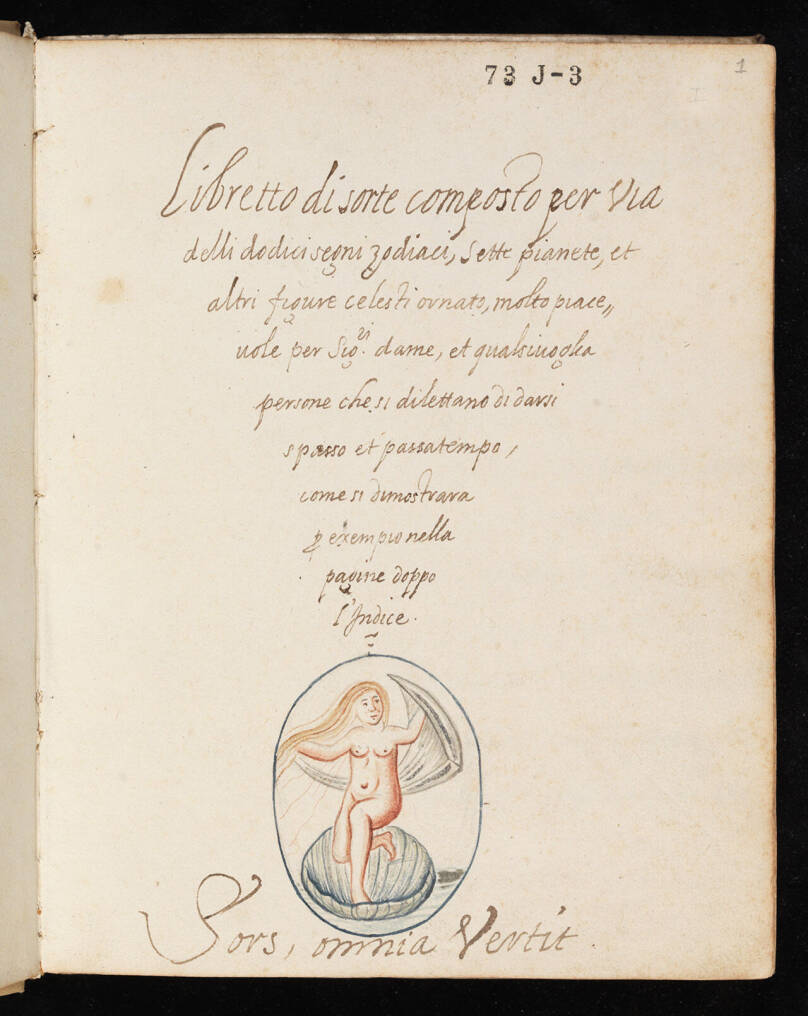 73 J-3
1
I
Libretto di sorte composto per Via
delli dodici segni zodiaci, Sette pianete, et
altri figure celesti ornato, molto piace„
uole per Sigri. dame, et qualsiuoglia
persone che si dilettano di darsi
spasso et passatempo,
come si dimostrara
ꝑ exempio nella
pagine doppo
l'Indice.
Sors, omnia Vertit.